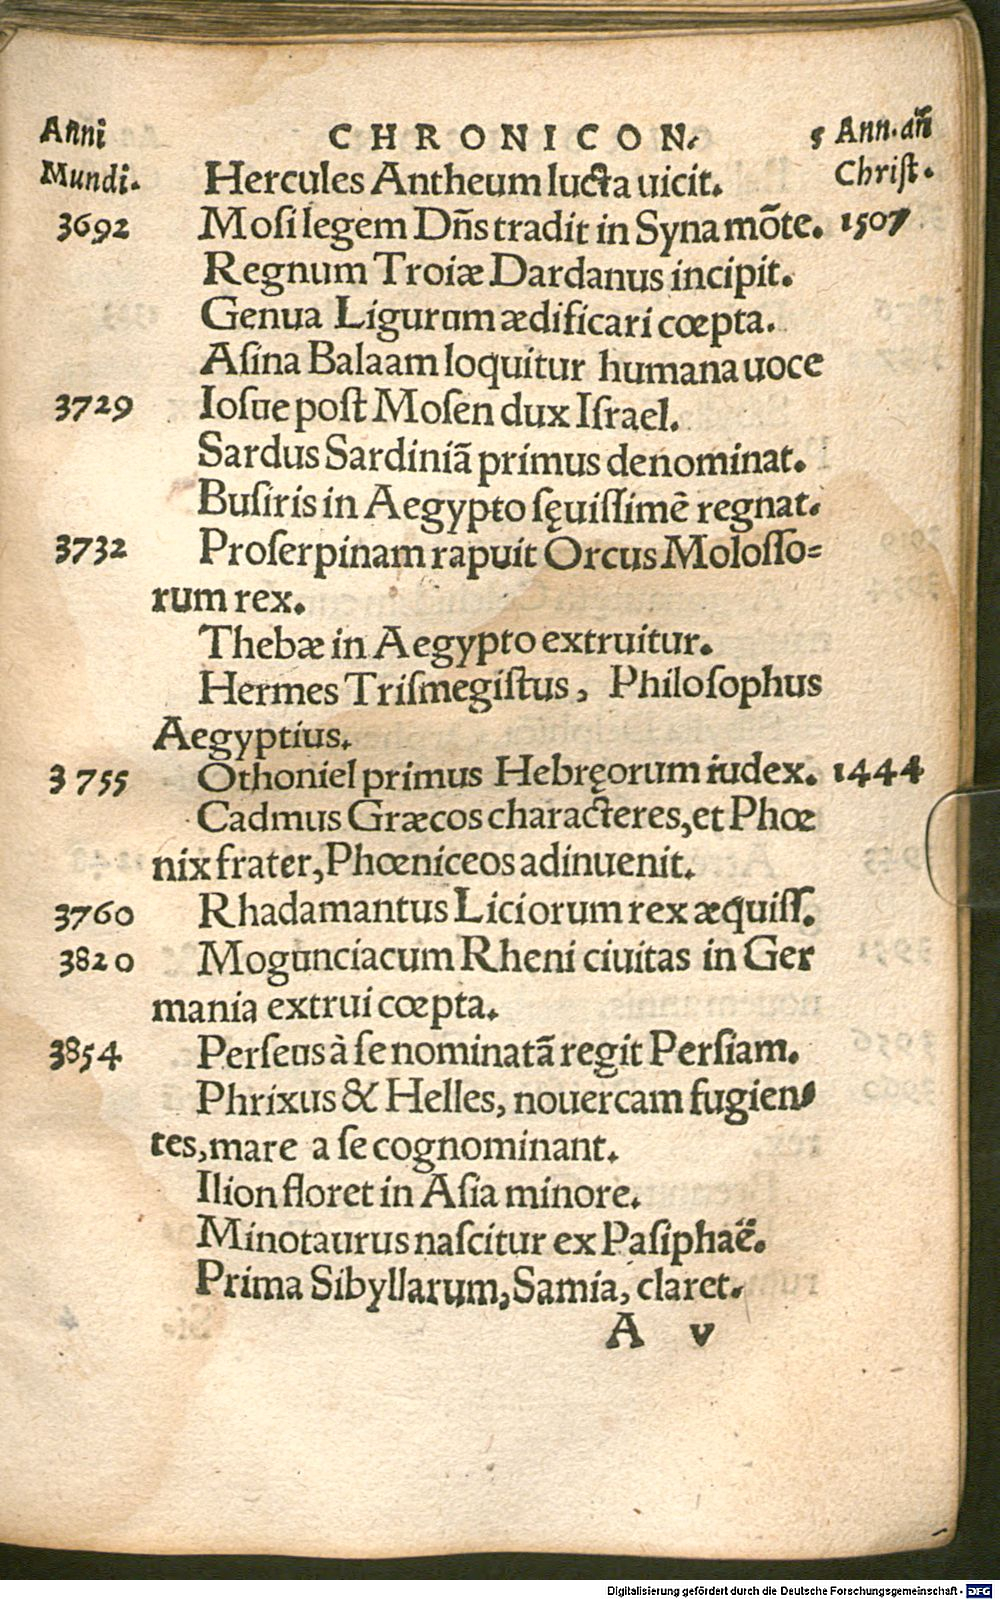 Anni CHRONICON. 5 Ann. añ
Mundi. Hercules Antheum lucta uicit. Christ.
3692 Mosi legem Dñs tradit in Syna mõte. 1507
Regnum Troiæ Dardanus incipit.
Genua Ligurum ædificari cœpta.
Asina Balaam loquitur humana uoce
3729 Iosue post Mosen dux Israel.
Sardus Sardiniã primus denominat.
Busiris in Aegypto sęuissimẽ regnat.
3732 Proserpinam rapuit Orcus Molosso=
rum rex.
Thebæ in Aegypto extruitur.
Hermes Trismegistus, Philosophus
Aegyptius.
3755 Othoniel primus Hebręorum iudex. 1444
Cadmus Græcos characteres, et Phœ
nix frater, Phœniceos adinuenit.
3760 Rhadamantus Liciorum rex æquiss.
3820 Mogunciacum Rheni ciuitas in Ger
mania extrui cœpta.
3854 Perseus à se nominatã regit Persiam.
Phrixus & Helles, nouercam fugien-
tes, mare a se cognominant.
Ilion floret in Asia minore.
Minotaurus nascitur ex Pasiphaë.
Prima Sibyllarum, Samia, claret.
A v
Digitalisierung gefördert durch die Deutsche Forschungsgemeinschaft - DFG